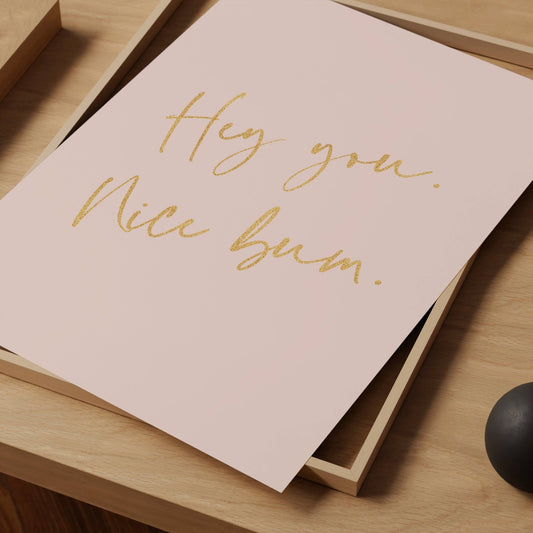 Hey you.
Nice bum.